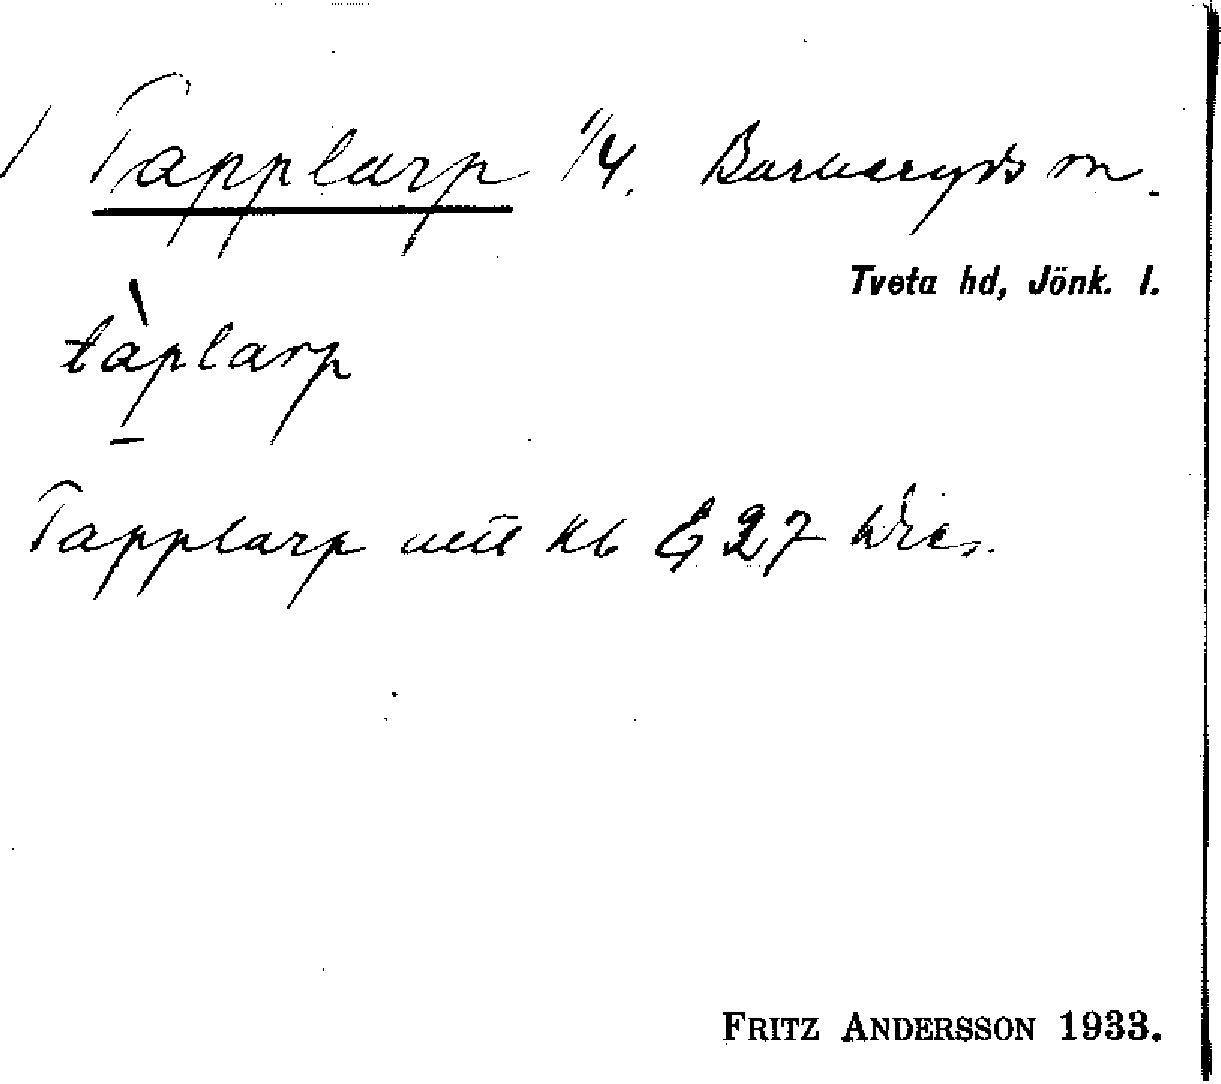 Tapplarp 1/4. Barkeryds sn.
Tveta hd, Jönk. l.
tàplarp
Tapplarp utt kb E 27
FRITZ ANDERSSON 1933.